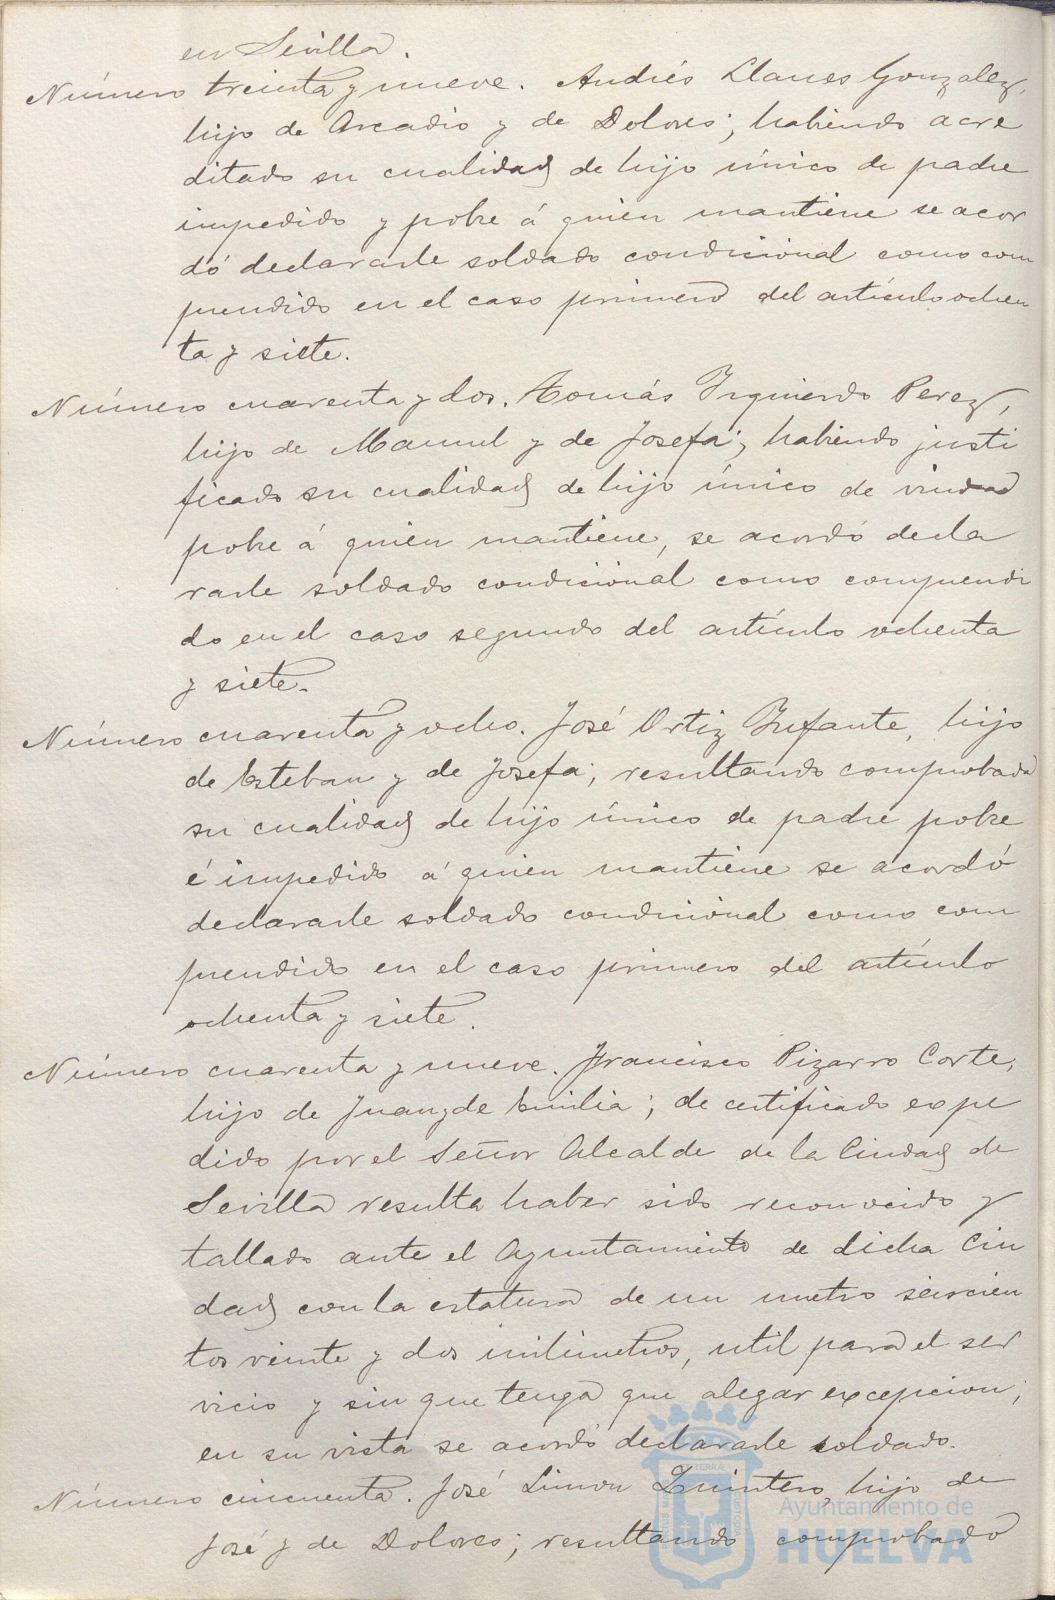 en Sevilla.
Número treinta y nueve. Andrés Llanes Gonzalez,
hijo de Arcadio y de Dolores; habiendo acre
ditado su cualidad de hijo único de padre
impedido y pobre á quien mantiene se acor
dó declararle soldado condicional como com
prendido en el caso primero del artículo ochen
ta y siete.
Número cuarenta y dos. Tomás Izquierdo Perez,
hijo de Manuel y de Josefa; habiendo justi
ficado su cualidad de hijo único de viuda
pobre á quien mantiene, se acordó decla
rarle soldado condicional como comprendi
do en el caso segundo del artículo ochenta
y siete.
Número cuarenta y ocho. José Ortiz Infante, hijo
de Esteban y de Josefa; resultando comprobada
su cualidad de hijo único de padre pobre
é impedido á quien mantiene se acordó
declararle soldado condicional como com
prendido en el caso primero del artículo
ochenta y siete.
Número cuarenta y nueve. Francisco Pizarro Corte,
hijo de Juan y de Emilia; de certificado expe
dido por el Señor Alcalde de la Ciudad de
Sevilla resulta haber sido reconocido y
tallado ante el Ayuntamiento de dicha Ciu
dad con la estatura de un metro seiscien
tos veinte y dos milimetros, util para el ser
vicio y sin que tenga que alegar excepcion;
en su vista se acordó declararle soldado.
Número cincuenta. José Limon Quintero, hijo de
José y de Dolores; resultando comprobado
Ayuntamiento de
HUELVA